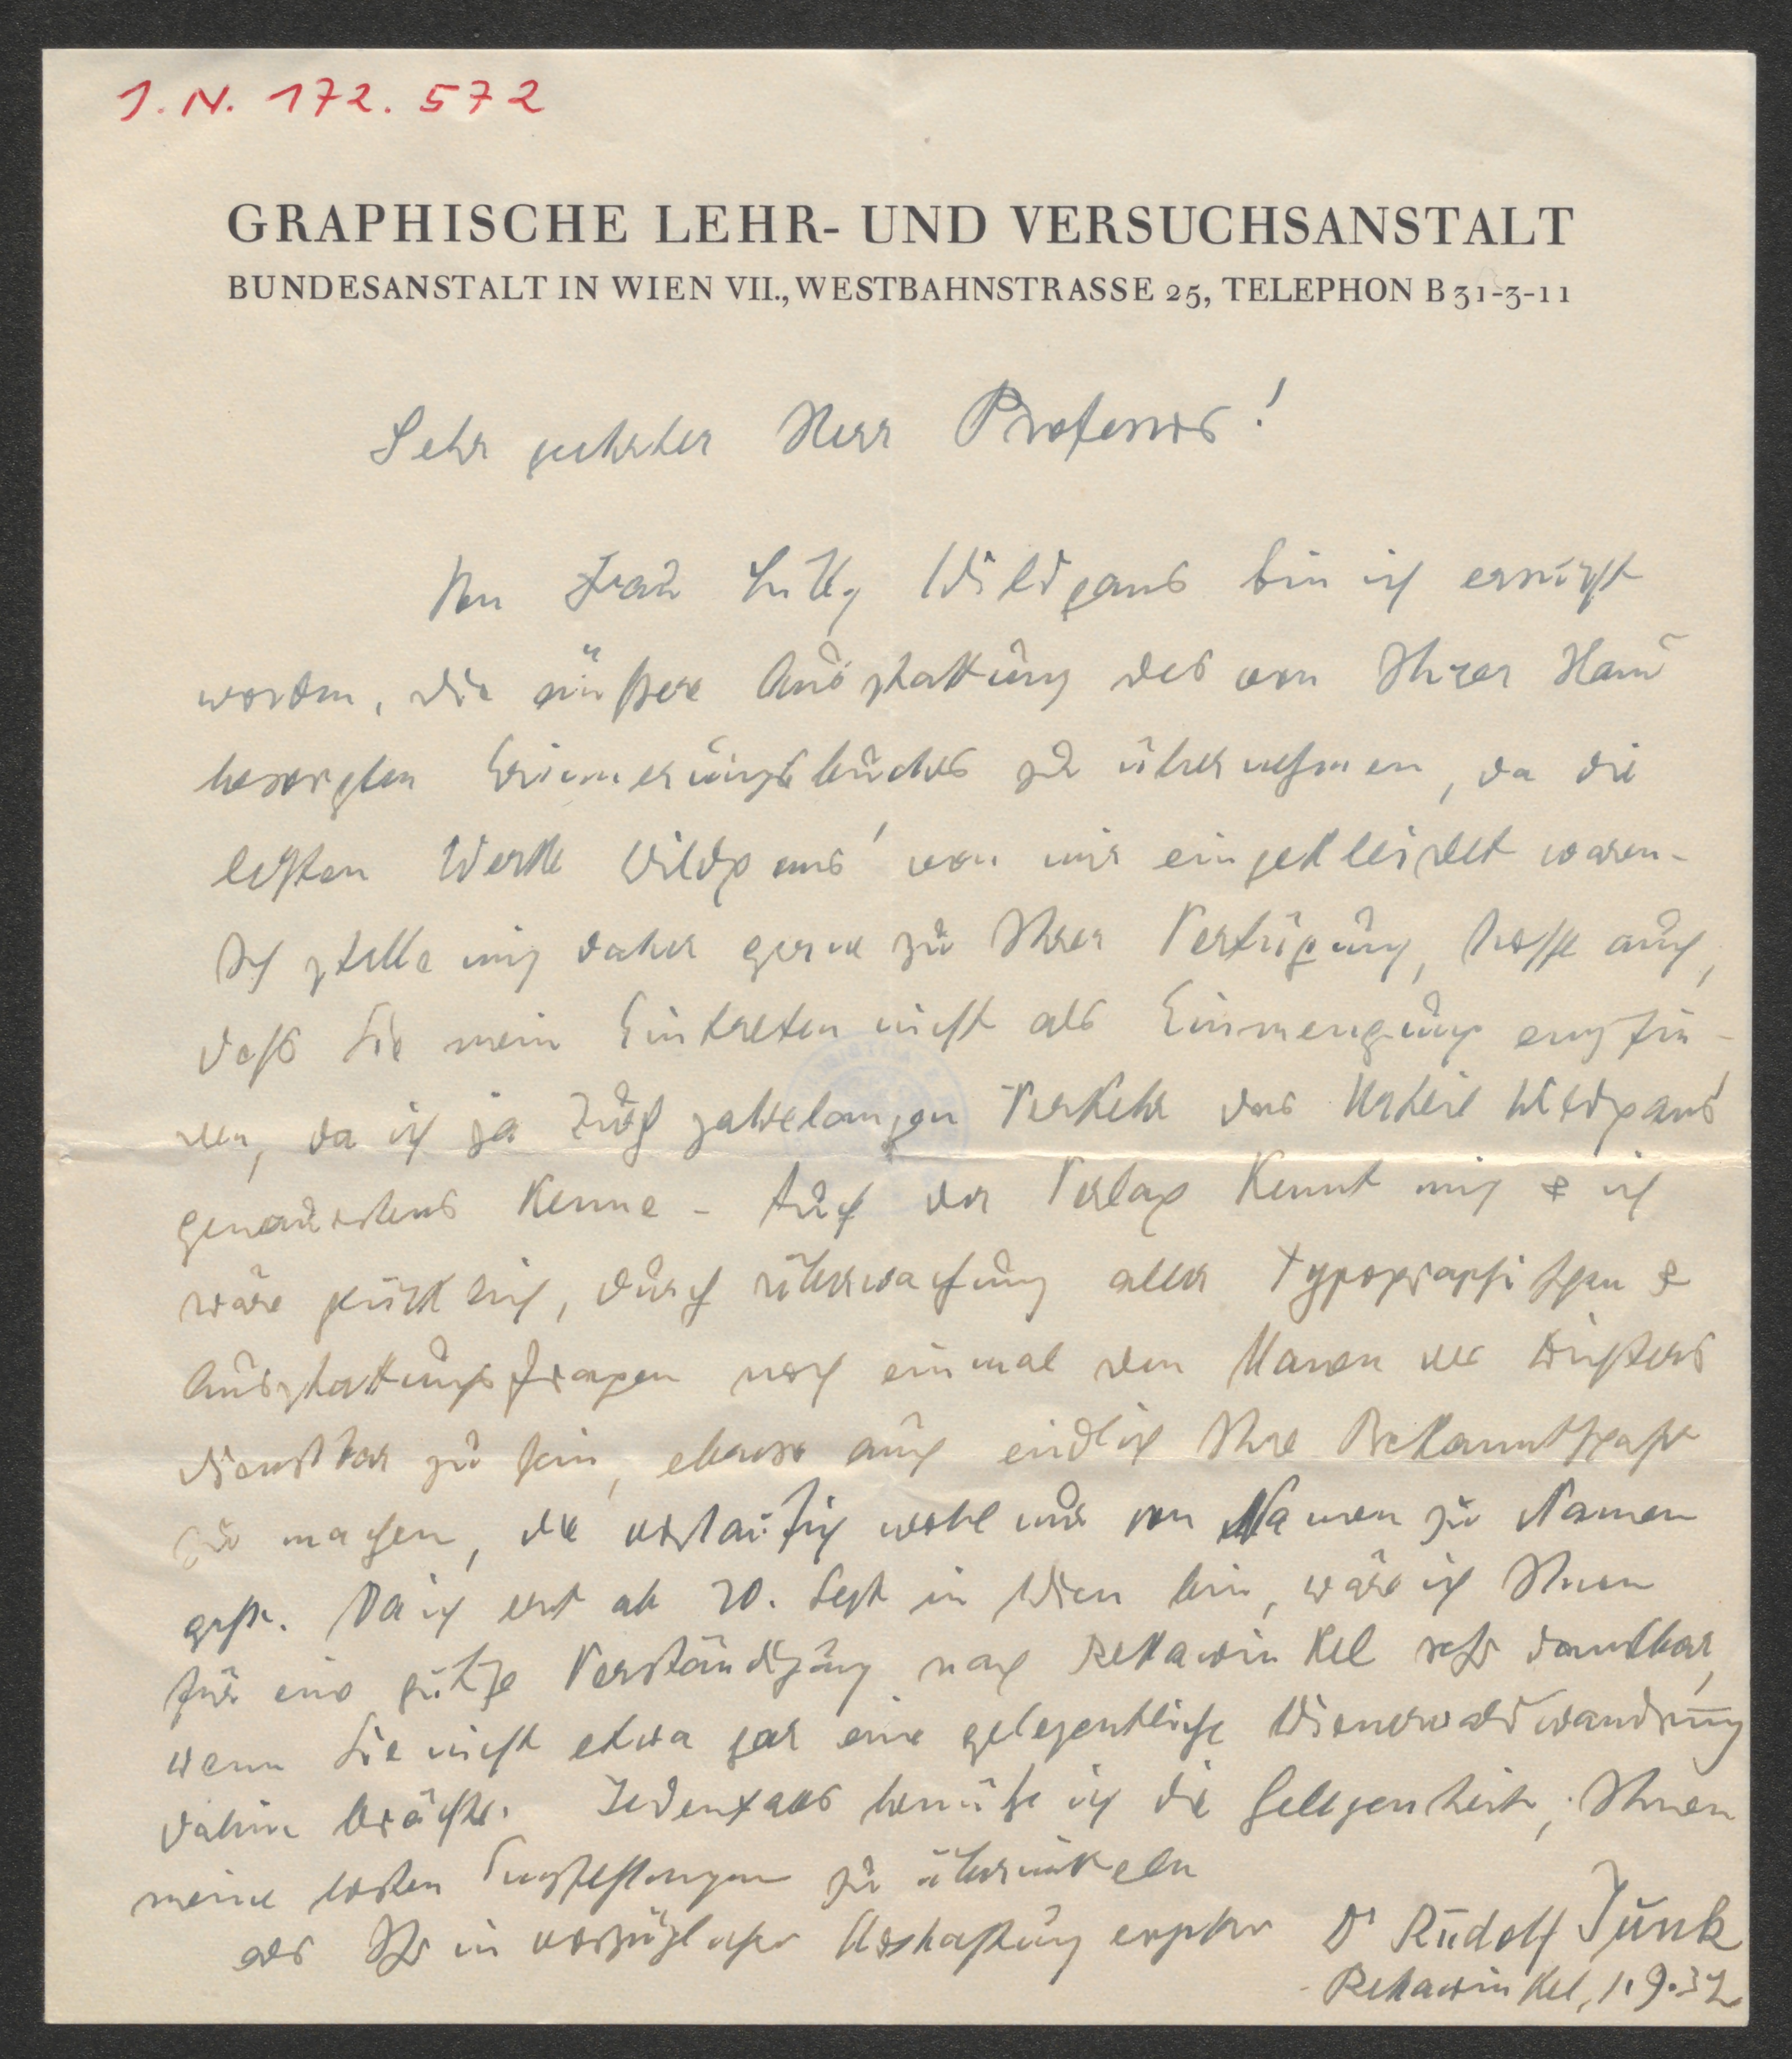 J. N. 172. 572
GRAPHISCHE LEHR- UND VERSUCHSANSTALT
BUNDESANSTALT IN WIEN VII., WESTBAHNSTRASSE 25, TELEPHON B 31-3-11
Sehr geehrter Herr Professor!
Von Frau Lilly Wildgans bin ich ersucht
worden, die äußere Ausstattung des von Ihrer Hand
besorgten Erinnerungsbuches zu übernehmen, da die
letzten Werke Wildgans' von mir eingekleidet waren.
Ich stelle mich daher gerne zu Ihrer Verfügung, hoffe auch,
daß Sie mein Eintreten nicht als Einmengung empfin-
den, da ich ja durch jahrelangen Verkehr das Urteil Wildgans'
genauestens kenne. Auch der Verlag kennt mich & ich
wäre glücklich, durch Überwachung aller typographischen &
Ausstattungsfragen noch einmal den Manen des Dichters
dienstbar zu sein, ebenso auch endlich Ihre Bekanntschaft
zu machen, die vorläufig wohl nur von Namen zu Namen
geht. Da ich erst ab 20. Sept in Wien bin, wäre ich Ihnen
für eine gütige Verständigung nach Rekawinkel sehr dankbar,
wenn Sie nicht etwa gar eine gelegentliche Wienerwaldwandrung
dahin brächte. Jedenfalls benütze ich die Gelegenheit, Ihnen
meine besten Empfehlungen zu übermitteln
als Ihr in vorzüglicher Hochachtung ergebener Dr Rudolf Junk
Rekawinkel, 1.9.32